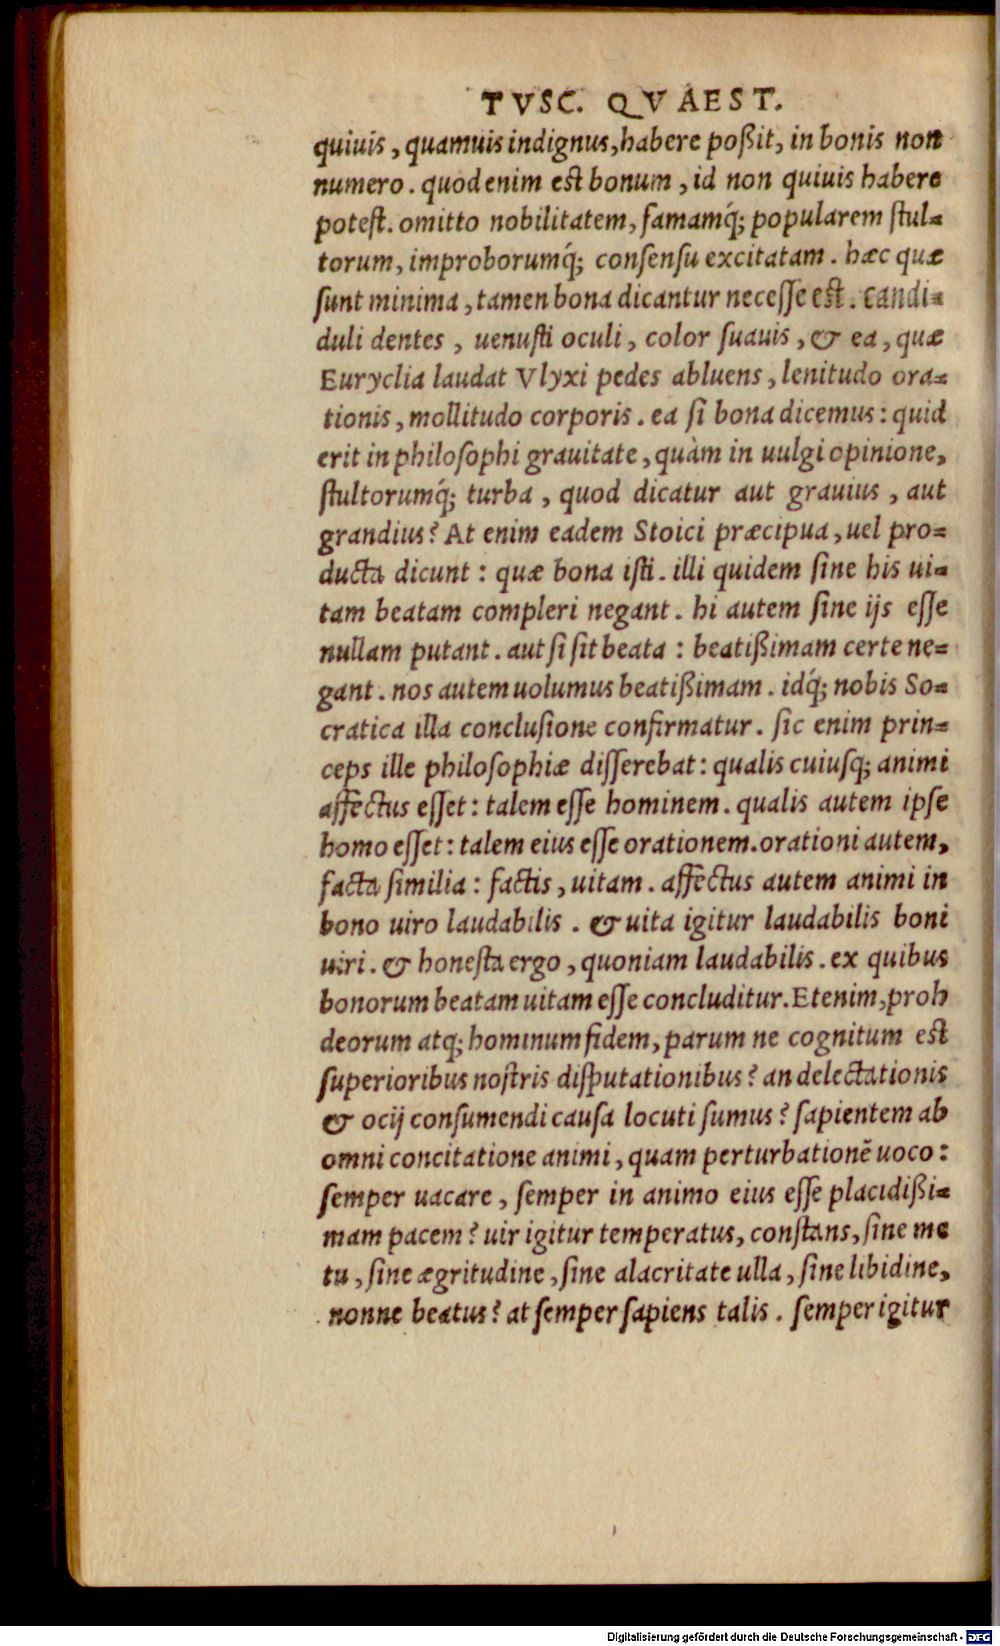 TVSC. QVAEST.
quiuis, quamuis indignus, habere poßit, in bonis non
numero. quod enim est bonum, id non quiuis habere
potest. omitto nobilitatem, famamq́; popularem stul-
torum, improborumq́; consensu excitatam. hæc quæ
sunt minima, tamen bona dicantur necesse est. candi-
duli dentes, uenusti oculi, color suauis, & ea, quæ
Euryclia laudat Vlyxi pedes abluens, lenitudo ora-
tionis, mollitudo corporis. ea si bona dicemus: quid
erit in philosophi grauitate, quàm in uulgi opinione,
stultorumq́; turba, quod dicatur aut grauius, aut
grandius? At enim eadem Stoici præcipua, uel pro-
ducta dicunt: quæ bona isti. illi quidem sine his ui-
tam beatam compleri negant. hi autem sine ijs esse
nullam putant. aut si sit beata: beatißimam certe ne-
gant. nos autem uolumus beatißimam. idq́; nobis So-
cratica illa conclusione confirmatur. sic enim prin-
ceps ille philosophiæ disserebat: qualis cuiusq; animi
affectus esset: talem esse hominem. qualis autem ipse
homo esset: talem eius esse orationem. orationi autem,
facta similia: factis, uitam. affectus autem animi in
bono uiro laudabilis. & uita igitur laudabilis boni
uiri. & honesta ergo, quoniam laudabilis. ex quibus
bonorum beatam uitam esse concluditur. Etenim, proh
deorum atq; hominum fidem, parum ne cognitum est
superioribus nostris disputationibus? an delectationis
& ocij consumendi causa locuti sumus? sapientem ab
omni concitatione animi, quam perturbationē uoco:
semper uacare, semper in animo eius esse placidißi-
mam pacem? uir igitur temperatus, constans, sine me
tu, sine ægritudine, sine alacritate ulla, sine libidine,
nonne beatus? at semper sapiens talis. semper igitur
Digitalisierung gefördert durch die Deutsche Forschungsgemeinschaft - DFG